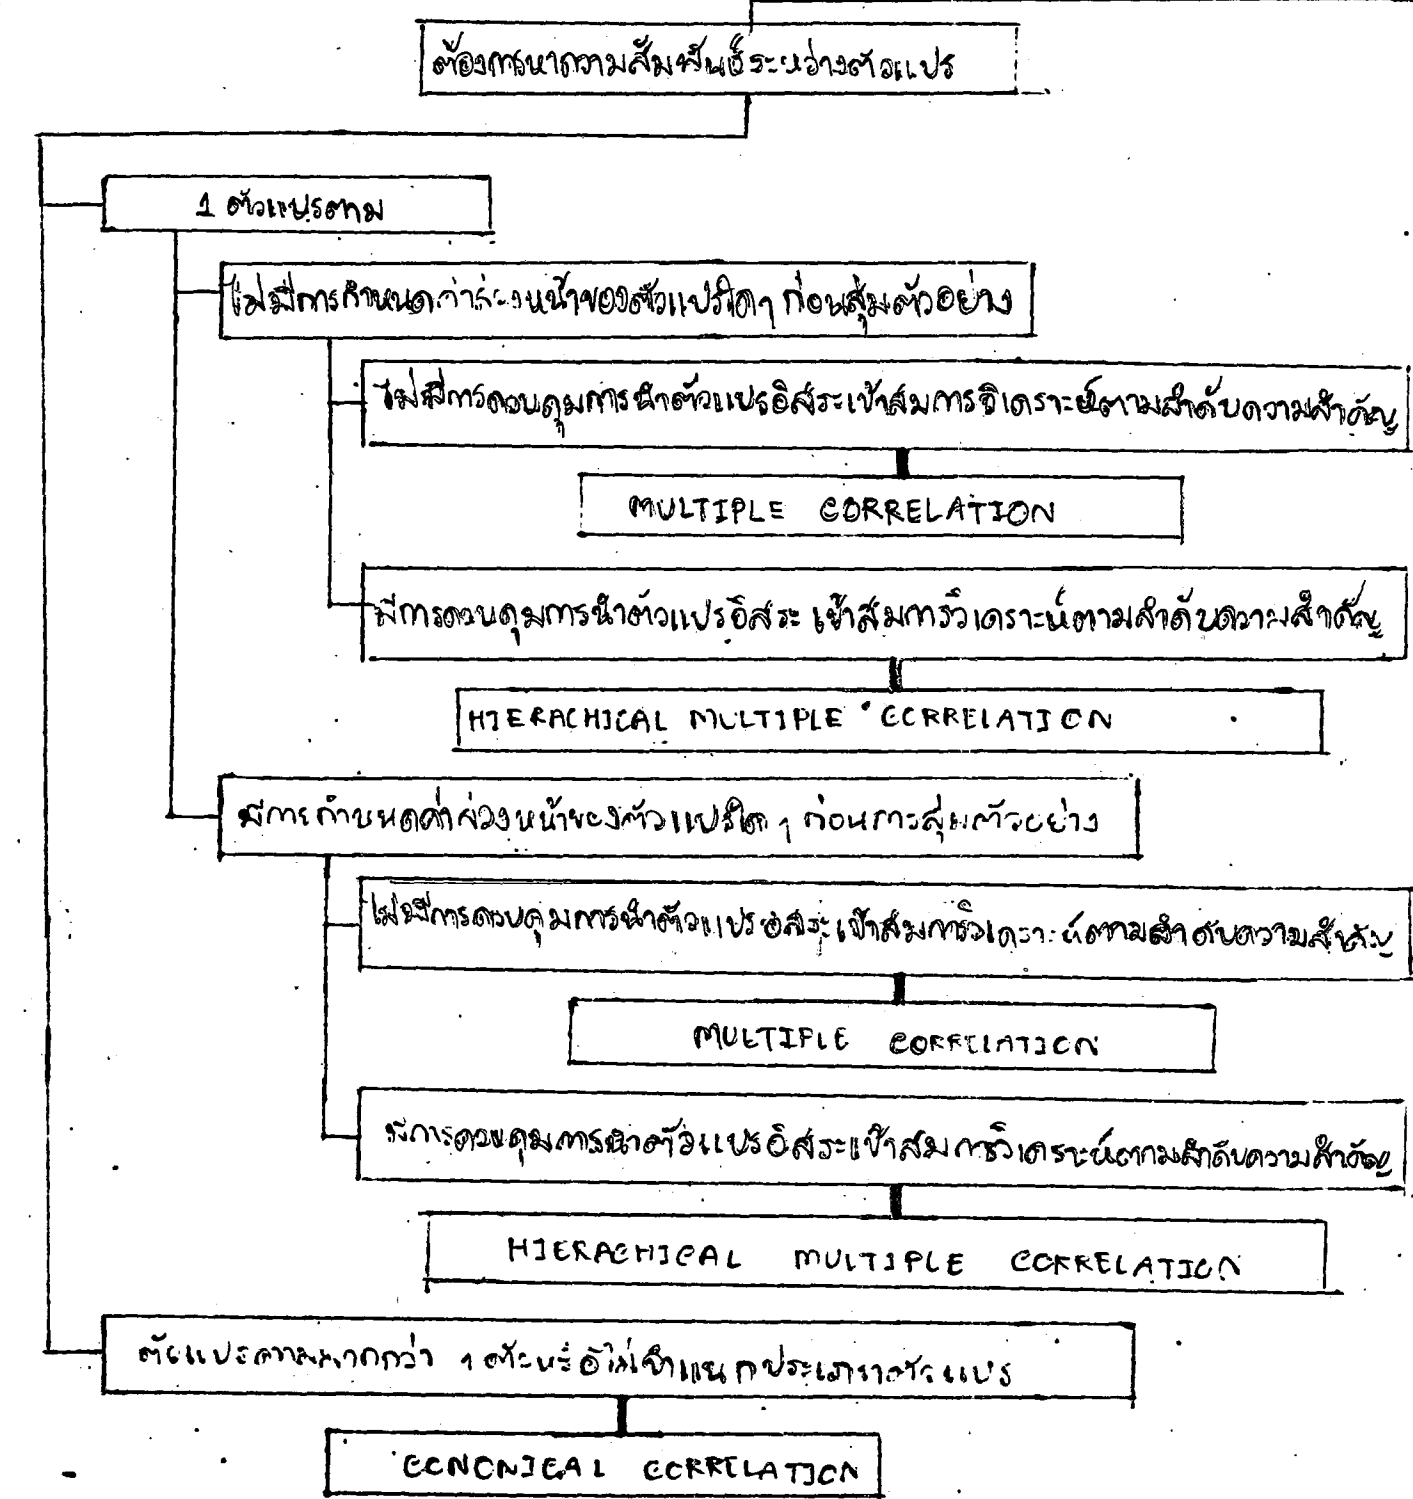 ต้องการหาความสัมพันธ์ระหว่างตัวแปร
1 ตัวแปรตาม
ไม่มีการกำหนดค่าล่วงหน้าของตัวแปรใดๆ ก่อนสุ่มตัวอย่าง
ไม่มีการควบคุมการนำตัวแปรอิสระเข้าสมการวิเคราะห์ตามลำดับความสำคัญ
MULTIPLE CORRELATION
มีการควบคุมการนำตัวแปรอิสระ เข้าสมการวิเคราะห์ตามลำดับความสำคัญ
HIERACHICAL MULTIPLE CORRELATION
มีการกำหนดค่าล่วงหน้าของตัวแปรใด ๆ ก่อนการสุ่มตัวอย่าง
ไม่มีการควบคุมการนำตัวแปรอิสระเข้าสมการวิเคราะห์ตามลำดับความสำคัญ
MULTIPLE CORRELATION
มีการควบคุมการนำตัวแปรอิสระเข้าสมการวิเคราะห์ตามลำดับความสำคัญ
HIERACHICAL MULTIPLE CORRELATION
ตัวแปรตามมากกว่า 1 ตัวหรือไม่จำแนกประเภทตัวแปร
CONONICAL CORRELATION